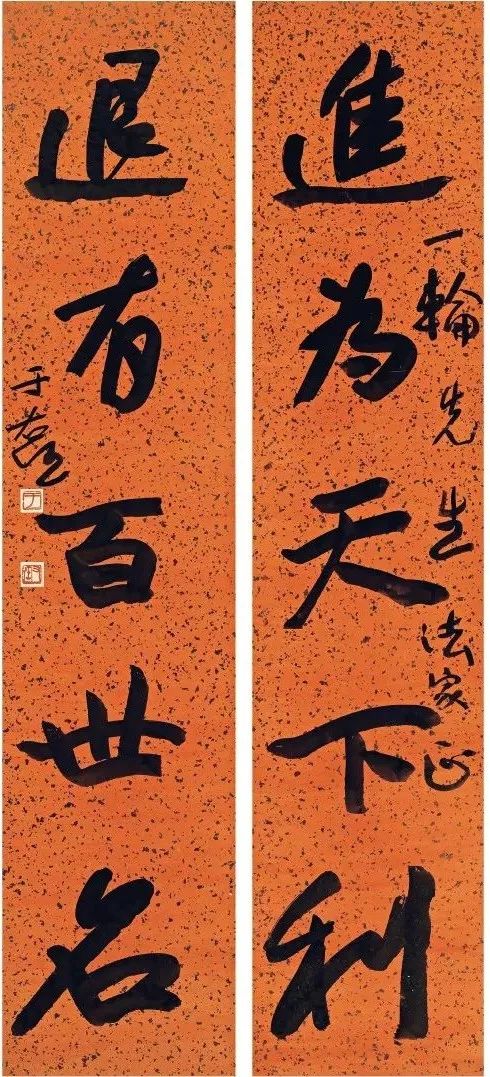 進為天下利
一輪先生法家正
退有百世名
于右任